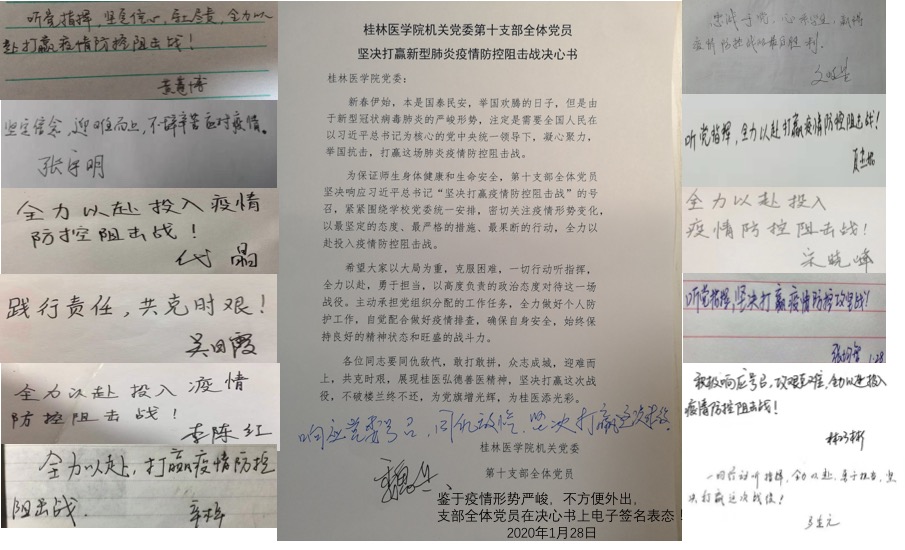 听党指挥，坚定信心，
全力以
赴打赢疫情防控阻击战！
坚定信念，迎难而上，不辞辛苦应对疫情。
张守明
全力以赴投入疫情
防控阻击战！
代晶
践行责任，共克时艰！
吴田霞
全力以赴投入疫情
防控阻击战！
李陈红
全力以赴，打赢疫情防控
阻击战。
桂林医学院机关党委第十支部全体党员
坚决打赢新型肺炎疫情防控阻击战决心书
桂林医学院党委：
新春伊始，本是国泰民安，举国欢腾的日子，但是由
于新型冠状病毒肺炎的严峻形势，注定是需要全国人民在
以习近平总书记为核心的党中央统一领导下，凝心聚力，
举国抗击，打赢这场肺炎疫情防控阻击战。
为保证师生身体健康和生命安全，第十支部全体党员
坚决响应习近平总书记“坚决打赢疫情防控阻击战”的号
召，紧紧围绕学校党委统一安排，密切关注疫情形势变化，
以最坚定的态度、最严格的措施、最果断的行动，全力以
赴投入疫情防控阻击战。
希望大家以大局为重，克服困难，一切行动听指挥，
全力以赴，勇于担当，以高度负责的政治态度对待这一场
战役。主动承担党组织分配的工作任务，全力做好个人防
护工作，自觉配合做好疫情排查，确保自身安全，始终保
持良好的精神状态和旺盛的战斗力。
各位同志要同仇敌忾，敢打敢拼，众志成城，迎难而
上，共克时艰，展现桂医弘德善医精神，坚决打赢这次战
役，不破楼兰终不还，为党旗增光辉，为桂医添光彩。
响应党委号召，同仇敌忾，坚决打赢这次战役
桂林医学院机关党委
第十支部全体党员
鉴于疫情形势严峻，不方便外出，
支部全体党员在决心书上电子签名表态！
2020年1月28日
听党指挥，全力以赴打赢疫情防控阻击战！
全力以赴投入
疫情防控阻击战！
宋晓峰
听党指挥，坚决打赢疫情防控攻坚战！
1.28
积极响应号召，攻艰克难，全力以赴投入
疫情防控阻击战！
一切行动听指挥，全力以赴，勇于担当，坚
决打赢这次战役！